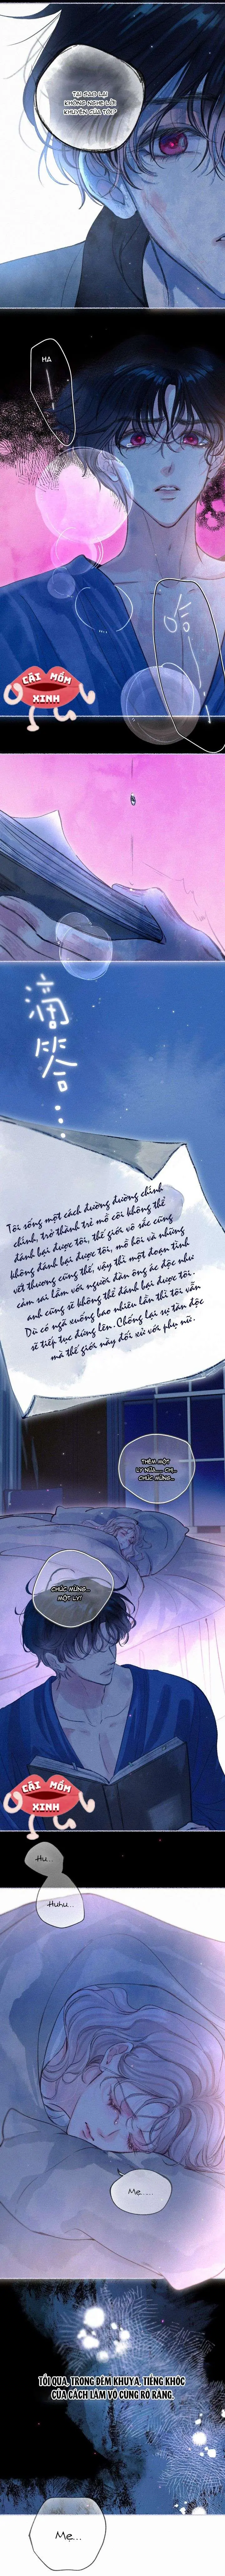 TẠI SAO LẠI
KHÔNG NGHE LỜI
KHUYÊN CỦA TÔI?
HA
哈
CÁI MỒM
XINH
滴
答
Tôi sống một cách đường đường chính
chính, trở thành trẻ mồ côi không thể
đánh bại được tôi, thế giới vô sắc cũng
không đánh bại được tôi, mồ hôi và những
vết thương cũng thế, vậy thì một đoạn tình
cảm sai lầm với người đàn ông ác độc như
anh cũng sẽ không thể đánh bại được tôi.
Dù có ngã xuống bao nhiêu lần thì tôi vẫn
sẽ tiếp tục đứng lên. Chống lại sự tàn độc
mà thế giới này đối xử với phụ nữ.
THÊM MỘT
CHÚC MỪNG...
CHÚC MỪNG...
MỘT LY!
CÁI MỒM
XINH
Hu...
Huhu...
Mẹ......
TỐI QUA, TRONG ĐÊM KHUYA, TIẾNG KHÓC
CỦA CÁCH LÂM VÔ CÙNG RÕ RÀNG.
Mẹ...